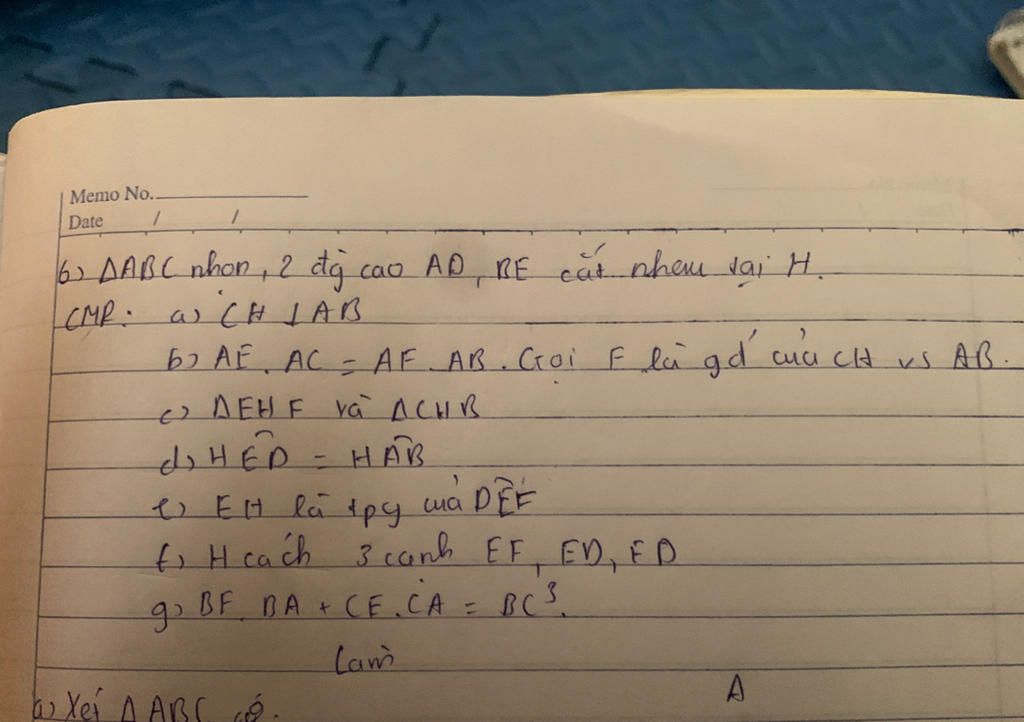 Memo No.
Date / /
6) ΔABC nhọn, 2 đg cao AD, BE cắt nhau tại H.
CMR: a) CH ⊥ AB
b) AE. AC = AF. AB. Gọi F là gđ của CH vs AB.
c) ΔEHF và ΔCHB
d) HÊD = HÂB
e) EH là tpg của DÊF
f) H cách 3 cạnh EF, ED, FD
g) BF. BA + CE. CA = BC³.
Làm
A
a) Xét ΔABC có.